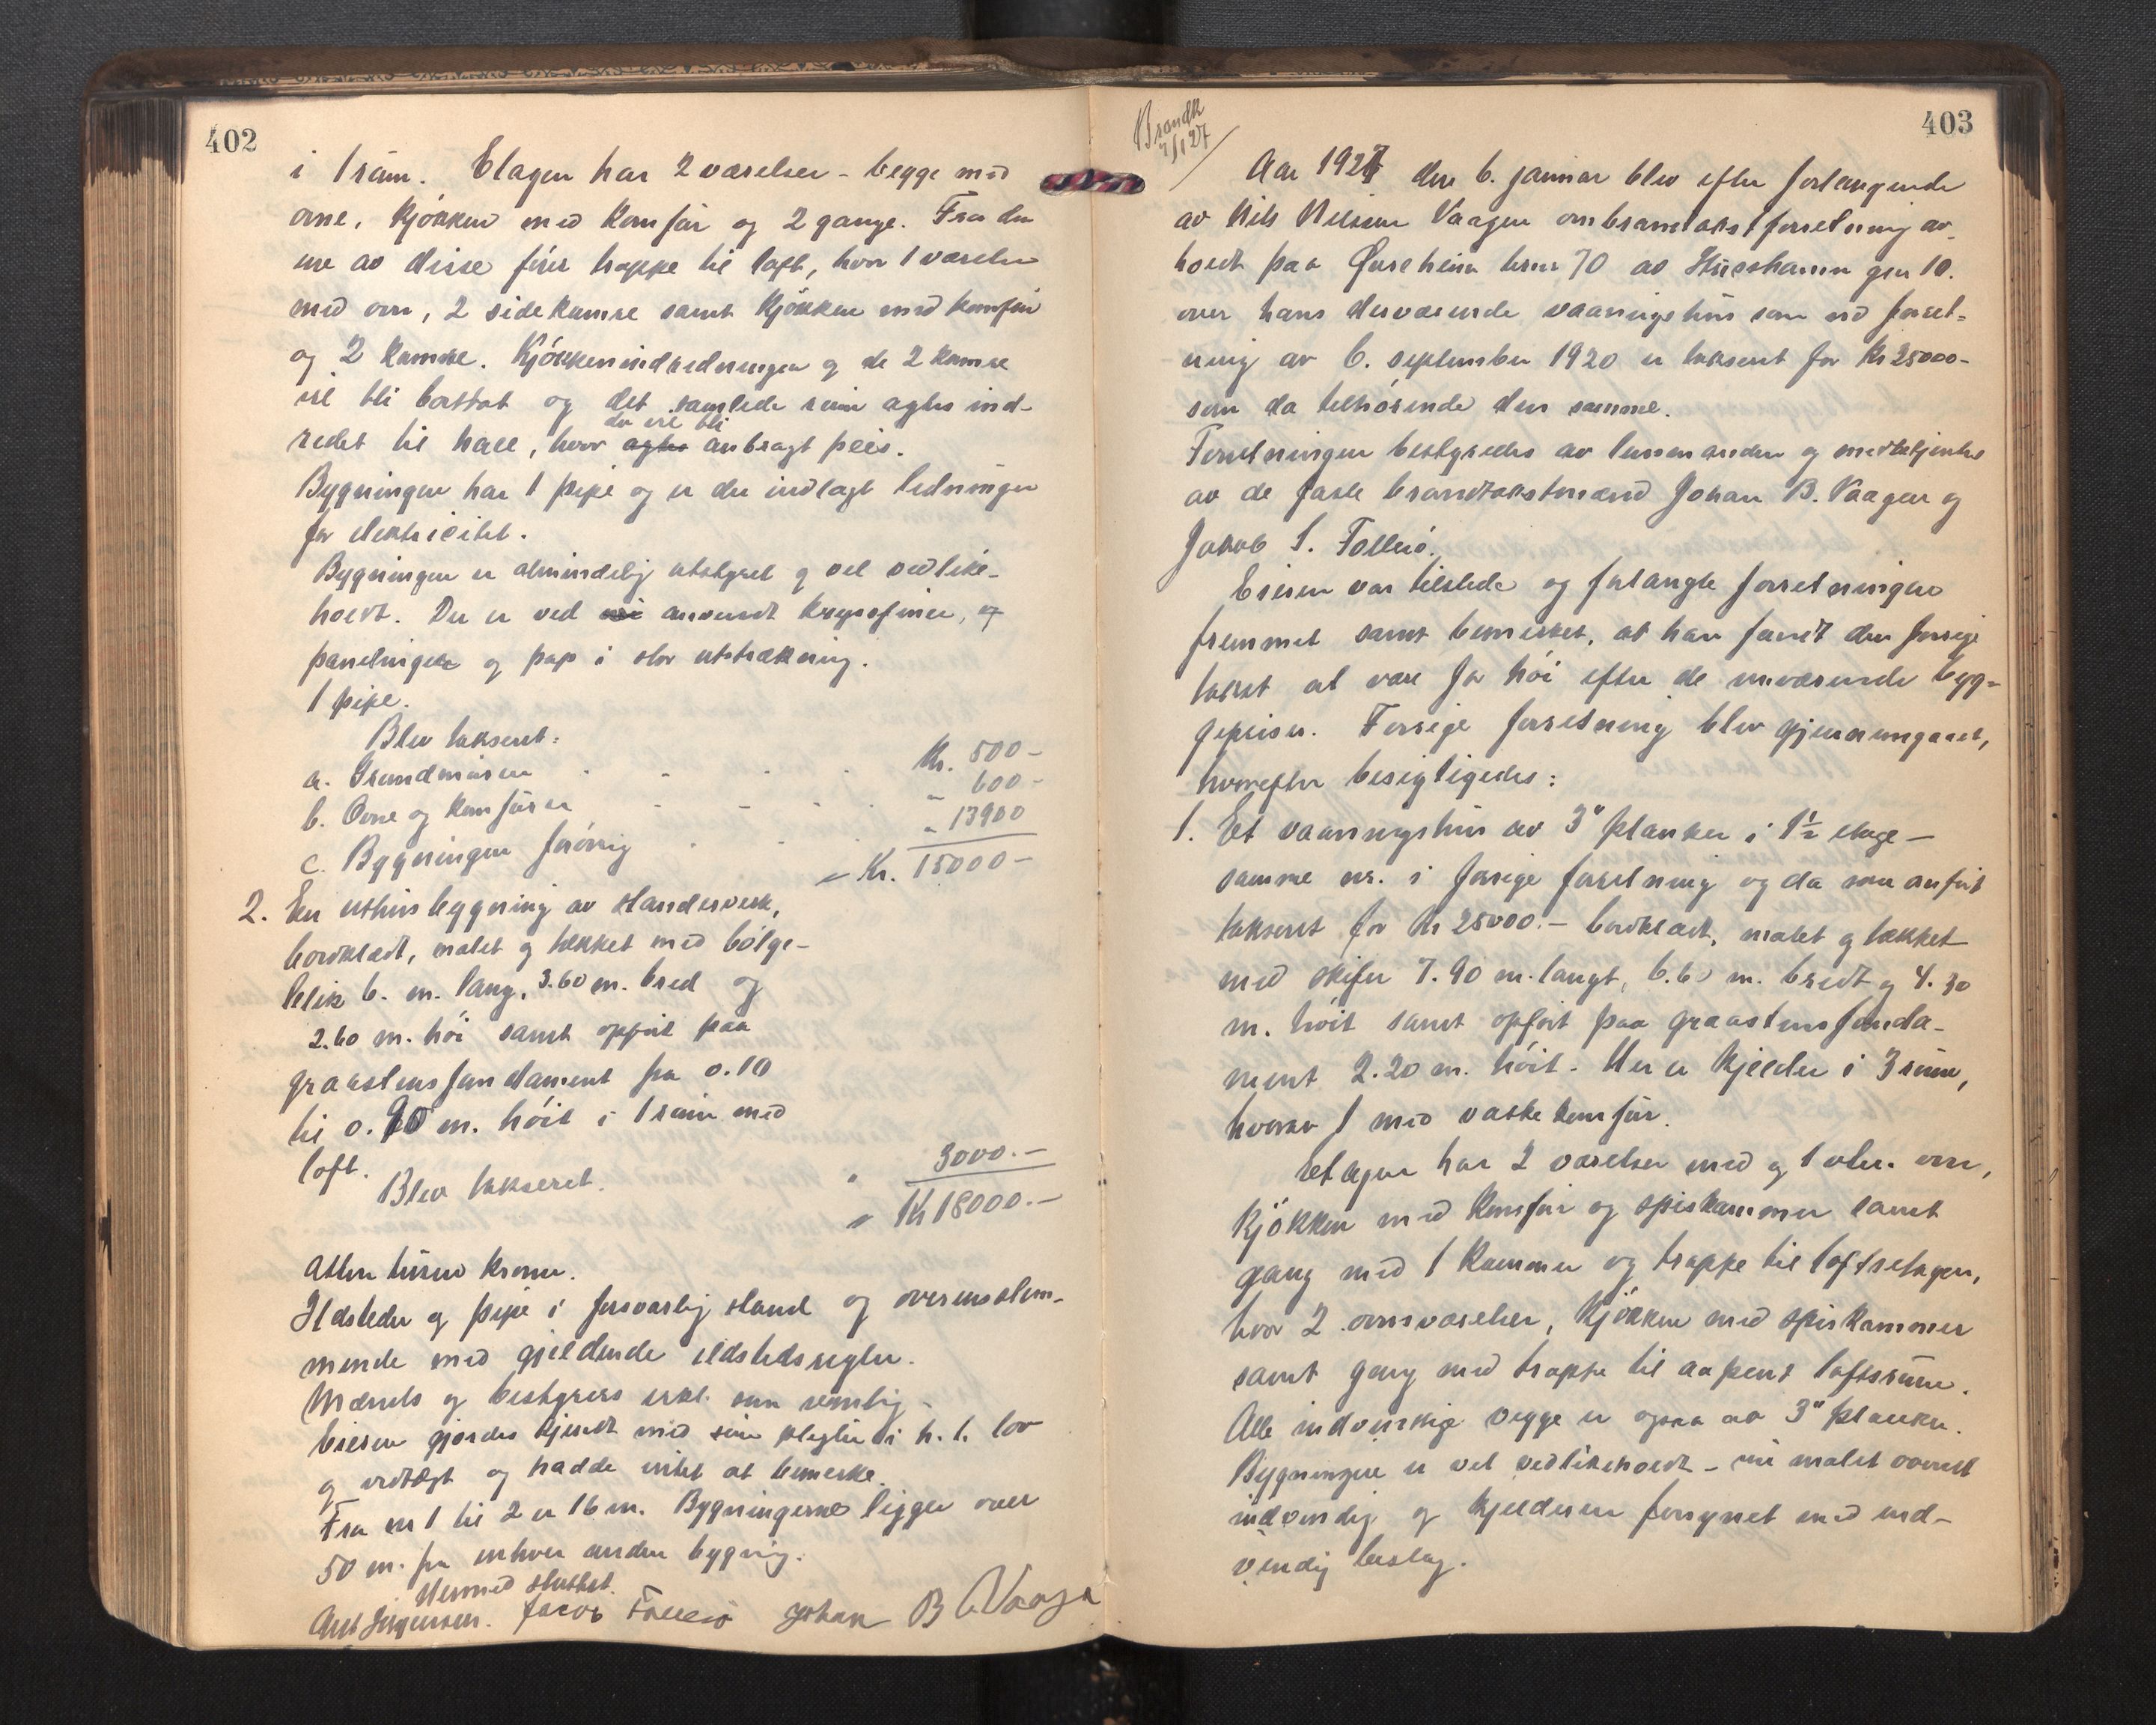 402
i 1 rum. Etagen har 2 værelser - begge med
ovne, kjøkken med komfur og 2 gange. Fra den
ene av disse fører trappe til loft, hvor 1 værelse
med ovn, 2 sidekamre samt kjøkken med komfur
og 2 kamre. Kjøkkenindredningen og de 2 kamre
vil bli borttat og det samlede rum agtes ind-
redet til hall, hvor agtes der vil bli anbragt peis.
Bygningen har 1 pipe og er der indlagt ledninger
for elektricitet.
Bygningen er almindelig utstyret og vel vedlike-
holdt. Der er ved anvendt krysfiner, og
panelinger og pap i stor utstrækning.
1 pipe.
Blev takseret:
a. Grundmuren Kr. 500-
b. Ovne og komfurer " 600-
c. Bygningen forøvrig " 13900
Kr. 15000-
2. En uthusbygning av standerverk,
bordklædt, malet og tekket med bølge-
blik 6. m. lang, 3.60 m. bred og
2.60 m. høi samt opført paa
graastensfundament fra 0.10
til 0.90 m. høit i 1 rum med
loft.
Blev takseret. " 3000.-
Kr 18000.-
Atten tusen kroner.
Ildsteder og pipe i forsvarlig stand og overensstem-
mende med gjeldende ildstedsregler.
Mænds og bestyrers erkl. som vanlig.
Eieren gjordes kjendt med sine pligter i h. t. lov
og vedtægt og hadde intet at bemerke.
Fra nr 1 til 2 er 16 m. Bygningerne ligger over
50 m. fra enhver anden bygning.
Hermed sluttet.
Jørgensen. Jacob Follesø Johan B Vaage
403
Brandk
7/1 27
Aar 1927 den 6. januar blev efter forlangende
av Nils Nilsen Vaagen ombrandtakstforretning av-
holdt paa bnr 70 av gnr 10.
over hans derværende vaaningshus som ved forret-
ning av 6. september 1920 er takseret for Kr 25000-
som da tilhørende den samme.
Forretningen bestyredes av lensmanden og medbetjentes
av de faste brandtakstmænd Johan B. Vaagen og
Jakob S. Follesø.
Eieren var tilstede og forlangte forretningen
fremmet samt bemerket, at han fandt den forrige
takst at være for høi efter de nuværende byg-
gepriser. Forrige forretning blev gjennemgaaet,
hvorefter besigtigedes:
1. Et vaaningshus av 3" planker i 1½ etage -
samme nr. i forrige forretning og da som anført
takseret for Kr 25000.- bordklædt, malet og tækket
med skifer 7.90 m. langt, 6.60 m. bredt og 4.30
m. høit samt opført paa graastensfunda-
ment 2.20 m. høit. Her er kjelder i 3 rum,
hvorav 1 med vaskekomfur.
Etagen har 2 værelser med og 1 uten ovn,
kjøkken med komfur og spiskammer samt
gang med 1 kammer og trappe til loftsetagen,
hvor 2 ovnsværelser, kjøkken med spiskammer
samt gang med trappe til aapent loftsrum.
Alle indvendige vegge er ogsaa av 3" planker.
Bygningen er vel vedlikeholdt - nu malet overalt
indvendig og kjelderen forsynet med ind-
vendig beslag.